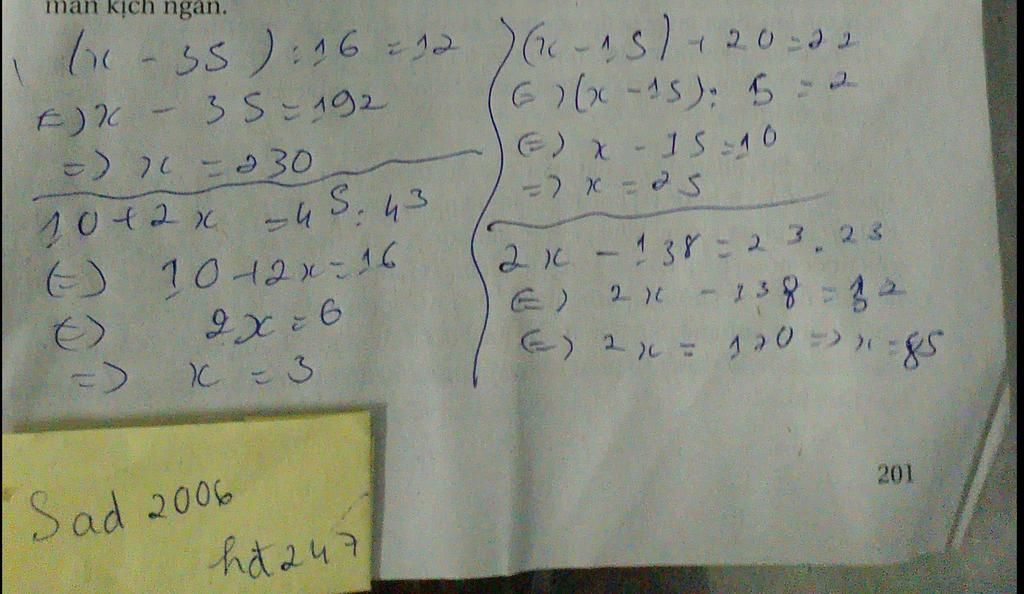 màn kịch ngắn.
(x - 35) : 16 = 12
(=) x - 35 = 192
=) x = 230
10 + 2x = 4^5 : 4^3
(=) 10 + 2x = 16
(=) 2x = 6
=) x = 3
)(x - 15) + 20 = 22
(=) (x - 15) : 5 = 2
(=) x - 15 = 10
=) x = 25
2x - 138 = 2^3 . 2^3
(=) 2x - 138 = 32
(=) 2x = 170 =) x = 85
201
Sad 2006
hd247